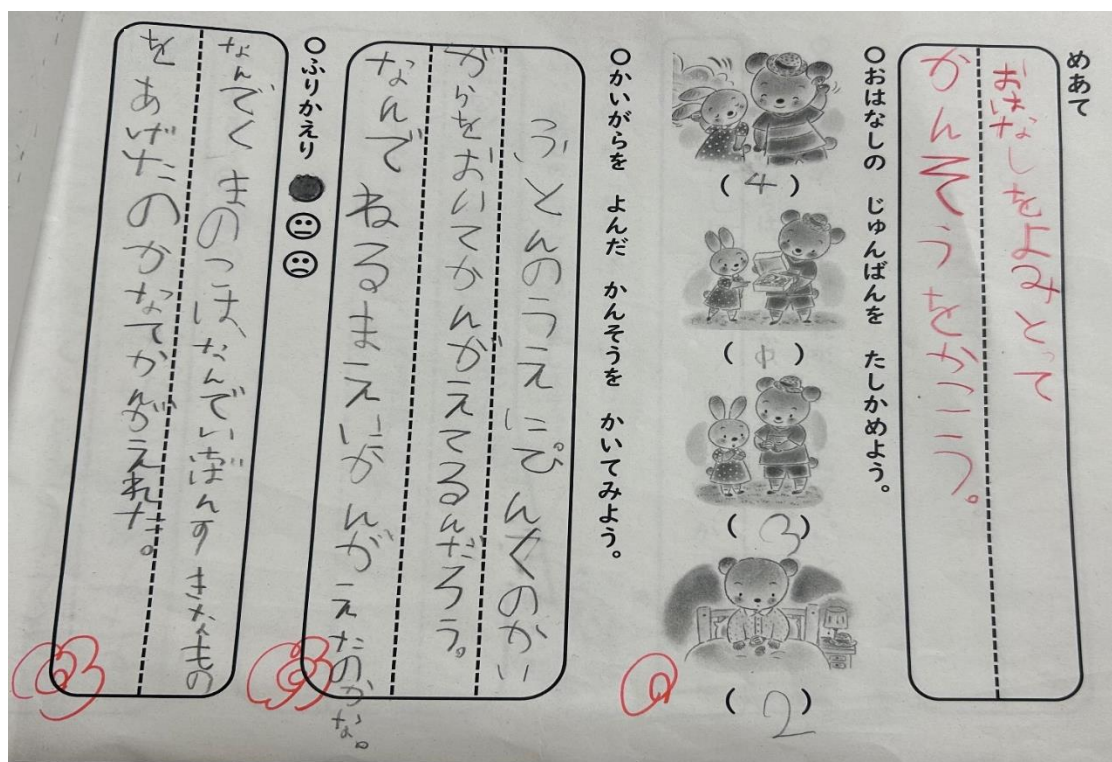 めあて
おはなしをよみとって
かんそうをかこう。
○おはなしの じゅんばんを たしかめよう。
(4)
( )
(3)
(2)
○かいがらを よんだ かんそうを かいてみよう。
ふとんのうえにぴんくのかい
がらをおいてかんがえてるんだろう。
なんでねるまえにかんがえたのかな。
○ふりかえり
なんでくまのこは、なんでいちばんすきなもの
をあげたのかなてかんがえれた。